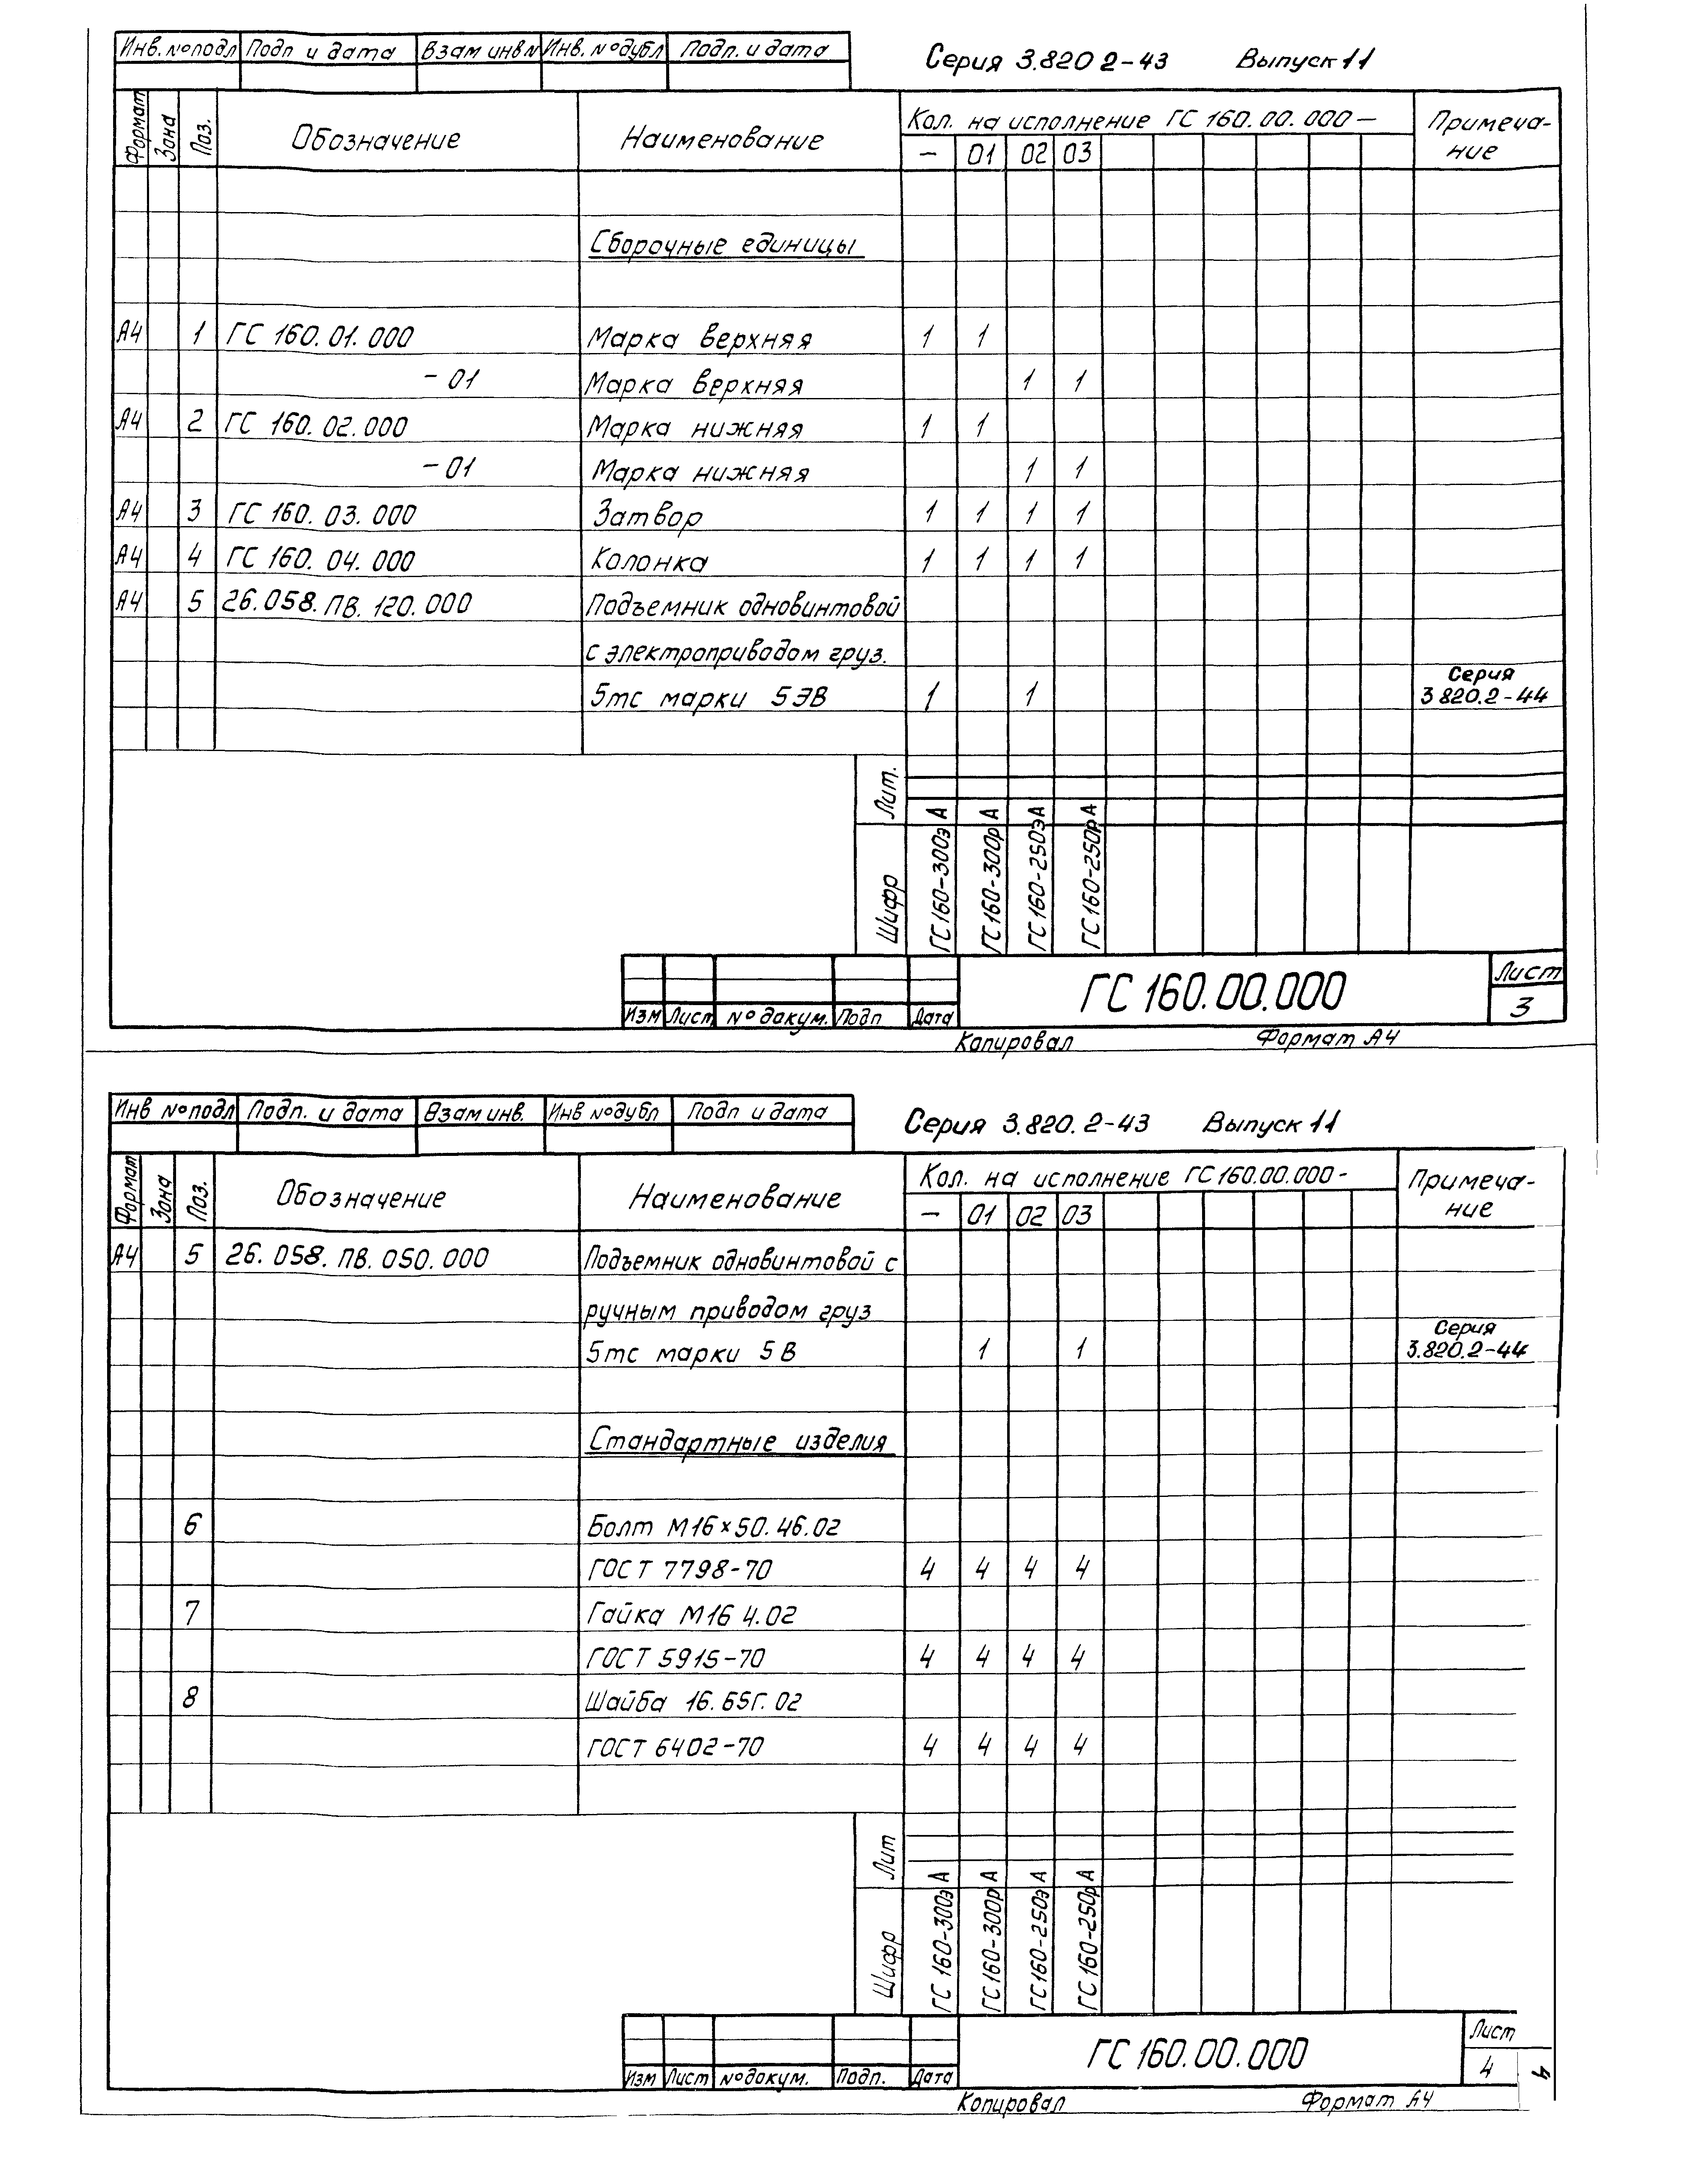 Инв. № подл Подп и дата Взам инв № Инв. № дубл Подп. и дата
Серия 3.820 2-43 Выпуск 11
Формат Зона Поз. Обозначение Наименование Кол. на исполнение ГС 160.00.000 — Примеча-
ние
— 01 02 03
Сборочные единицы
А4 1 ГС 160.01.000 Марка верхняя 1 1
-01 Марка верхняя 1 1
А4 2 ГС 160.02.000 Марка нижняя 1 1
-01 Марка нижняя 1 1
А4 3 ГС 160.03.000 Затвор 1 1 1 1
А4 4 ГС 160.04.000 Колонка 1 1 1 1
А4 5 26.058.ПВ.120.000 Подъемник одновинтовой
с электроприводом груз.
5тс марки 5ЭВ 1 1 Серия
3 820.2-44
Лит.
Шифр ГС 160-300э А ГС 160-300р А ГС 160-250э А ГС 160-250р А
ГС 160.00.000 Лист
3
Изм Лист № докум. Подп Дата
Копировал Формат А4
Инв № подл Подп. и дата Взам инв. Инв № дубл Подп и дата
Серия 3.820.2-43 Выпуск 11
Формат Зона Поз. Обозначение Наименование Кол. на исполнение ГС 160.00.000 - Примеча-
ние
— 01 02 03
А4 5 26.058.ПВ.050.000 Подъемник одновинтовой с
ручным приводом груз
5тс марки 5В 1 1 Серия
3.820.2-44
Стандартные изделия
6 Болт М16×50.46.02
ГОСТ 7798-70 4 4 4 4
7 Гайка М16 4.02
ГОСТ 5915-70 4 4 4 4
8 Шайба 16.65Г.02
ГОСТ 6402-70 4 4 4 4
Лит
Шифр ГС 160-300э А ГС 160-300р А ГС 160-250э А ГС 160-250р А
ГС 160.00.000 Лист
4
4
Изм Лист № докум. Подп. Дата
Копировал Формат А4